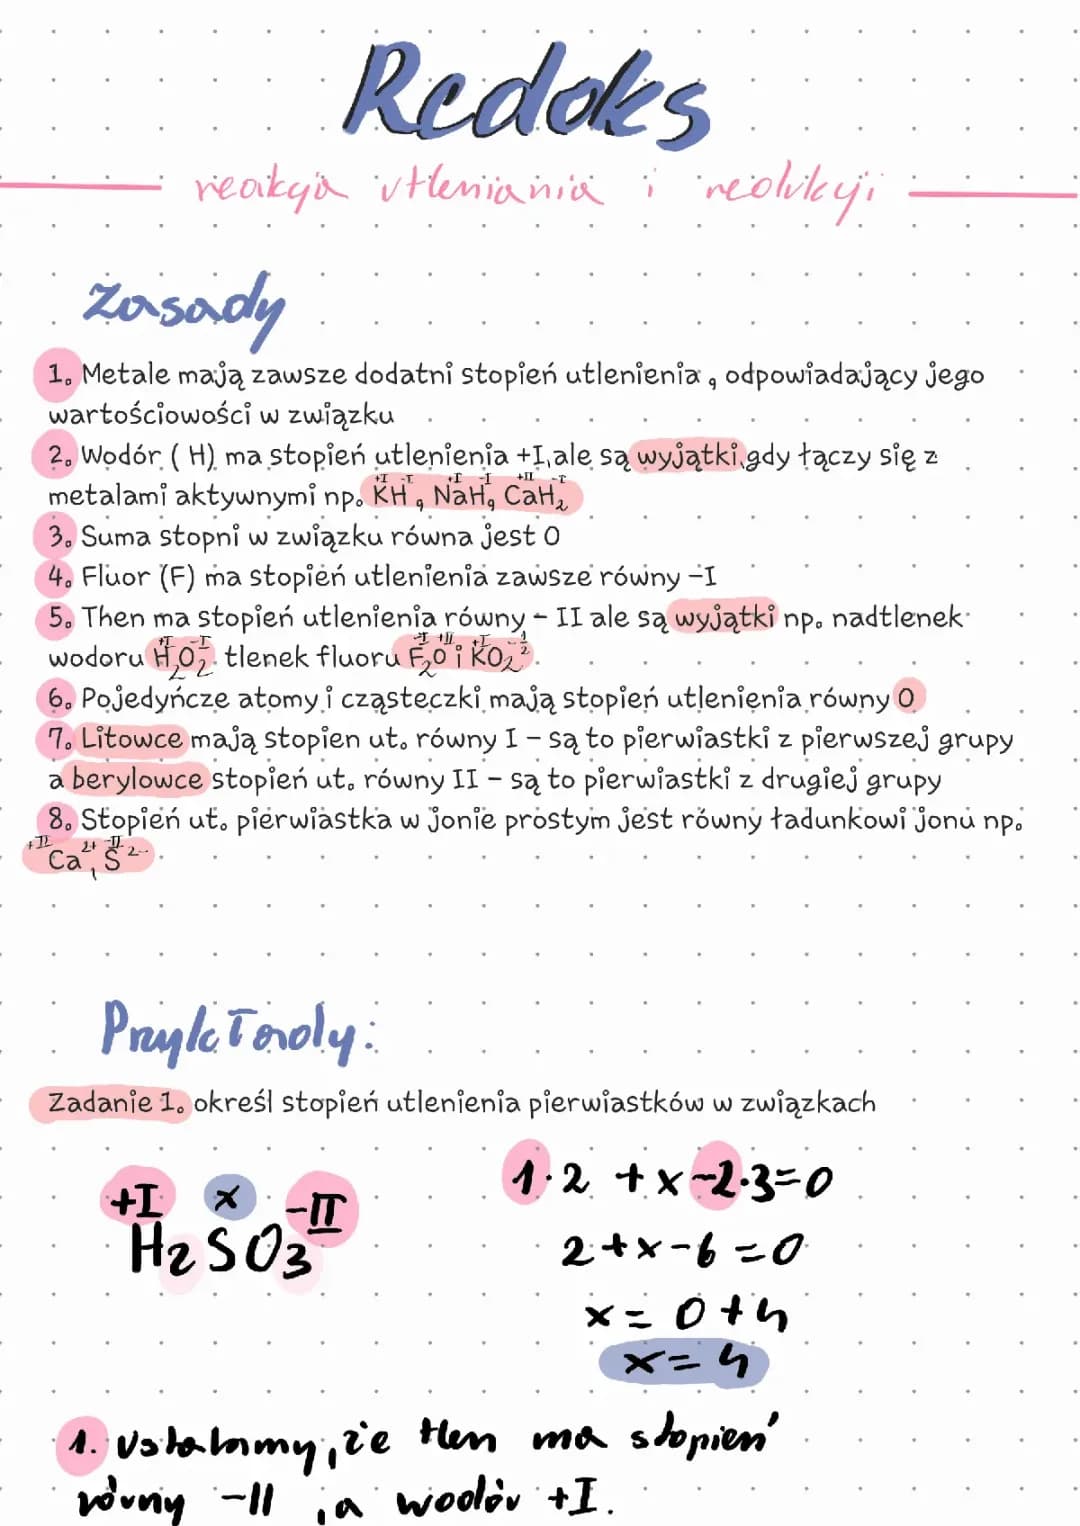 Redoks
reakcja utleniania i redukcji
Zasady
1. Metale mają zawsze dodatni stopień utlenienia, odpowiadający jego
wartościowości w związku
2. Wodór ( H) ma stopień utlenienia +I, ale są wyjątki, gdy łączy się z
+I -I +I -I +II -I
metalami aktywnymi np. KH, NaH, CaH₂
3. Suma stopni w związku równa jest 0
4. Fluor (F) ma stopień utlenienia zawsze równy -I
5. Then ma stopień utlenienia równy - II ale są wyjątki np. nadtlenek
+I -I -I +II +I -1/2
wodoru H₂O₂ tlenek fluoru F₂O i KO₂
6. Pojedyńcze atomy i cząsteczki mają stopień utlenienia równy 0
7. Litowce mają stopien ut. równy I - są to pierwiastki z pierwszej grupy
a berylowce stopień ut. równy II - są to pierwiastki z drugiej grupy
8. Stopień ut. pierwiastka w jonie prostym jest równy ładunkowi jonu np.
+II -II
Ca²⁺, S²⁻
Przykłady:
Zadanie 1. określ stopień utlenienia pierwiastków w związkach
+I x -II
H₂SO₃
1·2 +x-2·3=0
2+x-6=0
x= 0+4
x=4
1. Ustalamy, że tlen ma stopień
równy -II, a wodór +I.